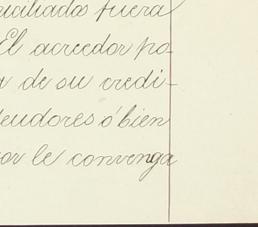 iciliados fuera
El acreedor po
a de su credi-
deudores ó bien
or le convenga